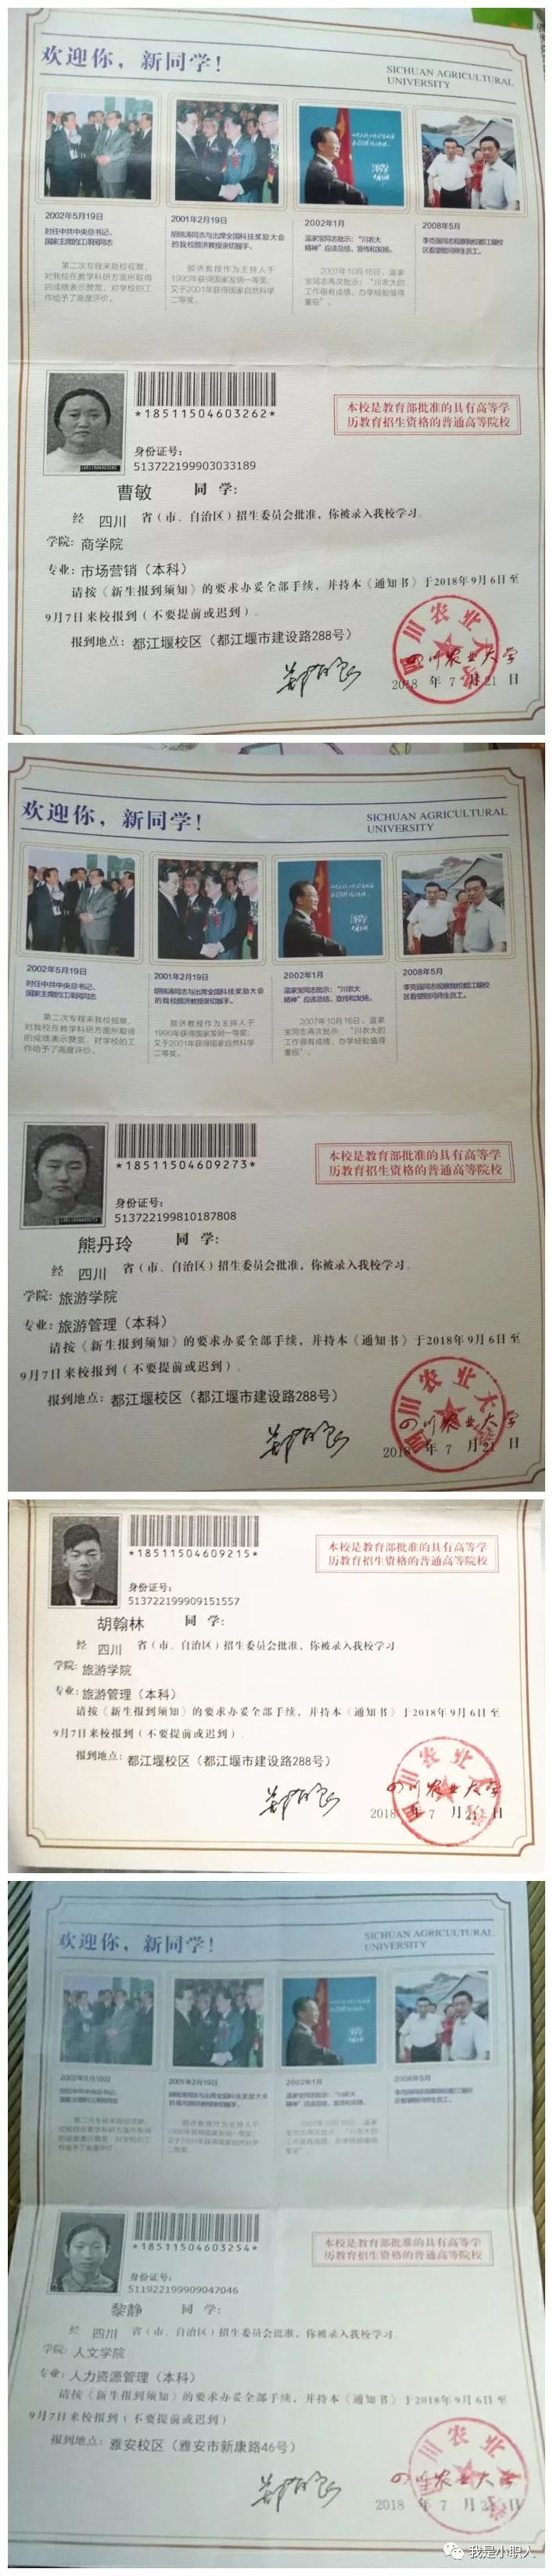 欢迎你，新同学！
SICHUAN AGRICULTURAL
UNIVERSITY
2002年5月19日
时任中共中央总书记、
国家主席的江泽民同志
第二次专程来我校视察，
对我校在教学科研方面所取得
的成绩表示赞赏，对学校的工
作给予了高度评价。
2001年2月19日
胡锦涛同志与出席全国科技奖励大会
的我校颜济教授亲切握手。
颜济教授作为主持人于
1990年获得国家发明一等奖，
又于2001年获得国家自然科学
二等奖。
2002年1月
温家宝同志批示：“川农大
精神”应该总结、宣传和发扬。
2007年10月16日，温家
宝同志再次批示：“川农大的
工作很有成绩，办学经验值得
重视”。
2008年5月
李克强同志视察我校都江堰校
区看望慰问师生员工。
*18511504603262*
本校是教育部批准的具有高等学
历教育招生资格的普通高等院校
身份证号：
513722199903033189
曹敏 同 学：
经 四川 省（市、自治区）招生委员会批准，你被录入我校学习。
学院：商学院
专业：市场营销（本科）
请按《新生报到须知》的要求办妥全部手续，并持本《通知书》于2018年9月6日至
9月7日来校报到（不要提前或迟到）。
报到地点：都江堰校区（都江堰市建设路288号）
四川农业大学
2018 年 7 月21 日
欢迎你，新同学！
SICHUAN AGRICULTURAL
UNIVERSITY
2002年5月19日
时任中共中央总书记、
国家主席的江泽民同志
第二次专程来我校视察，
对我校在教学科研方面所取得
的成绩表示赞赏，对学校的工
作给予了高度评价。
2001年2月19日
胡锦涛同志与出席全国科技奖励大会
的我校颜济教授亲切握手。
颜济教授作为主持人于
1990年获得国家发明一等奖，
又于2001年获得国家自然科学
二等奖。
2002年1月
温家宝同志批示：“川农大
精神”应该总结、宣传和发扬。
2007年10月16日，温家
宝同志再次批示：“川农大的
工作很有成绩，办学经验值得
重视”。
2008年5月
李克强同志视察我校都江堰校
区看望慰问师生员工。
*18511504609273*
本校是教育部批准的具有高等学
历教育招生资格的普通高等院校
身份证号：
513722199810187808
熊丹玲 同 学：
经 四川 省（市、自治区）招生委员会批准，你被录入我校学习。
学院：旅游学院
专业：旅游管理（本科）
请按《新生报到须知》的要求办妥全部手续，并持本《通知书》于2018年9月6日至
9月7日来校报到（不要提前或迟到）。
报到地点：都江堰校区（都江堰市建设路288号）
四川农业大学
2018 年 7 月21 日
*18511504609215*
本校是教育部批准的具有高等学
历教育招生资格的普通高等院校
身份证号：
513722199909151557
胡翰林 同 学：
经 四川 省（市、自治区）招生委员会批准，你被录入我校学习
学院：旅游学院
专业：旅游管理（本科）
请按《新生报到须知》的要求办妥全部手续，并持本《通知书》于2018年9月6日至
9月7日来校报到（不要提前或迟到）。
报到地点：都江堰校区（都江堰市建设路288号）
四川农业大学
2018 年 7 月21 日
欢迎你，新同学！
SICHUAN AGRICULTURAL
UNIVERSITY
2002年5月19日
2001年2月19日
胡锦涛同志与出席全国科技奖励大会
的我校颜济教授亲切握手。
2002年1月
温家宝同志批示：“川农大
精神”应该总结、宣传和发扬。
2008年5月
李克强同志视察我校都江堰校
区看望慰问师生员工。
*18511504603254*
本校是教育部批准的具有高等学
历教育招生资格的普通高等院校
身份证号：
511922199909047046
黎静 同 学：
经 四川 省（市、自治区）招生委员会批准，你被录入我校学习。
学院：人文学院
专业：人力资源管理（本科）
请按《新生报到须知》的要求办妥全部手续，并持本《通知书》于2018年9月6日至
9月7日来校报到（不要提前或迟到）。
报到地点：雅安校区（雅安市新康路46号）
四川农业大学
2018 年 7 月21 日
我是小职人